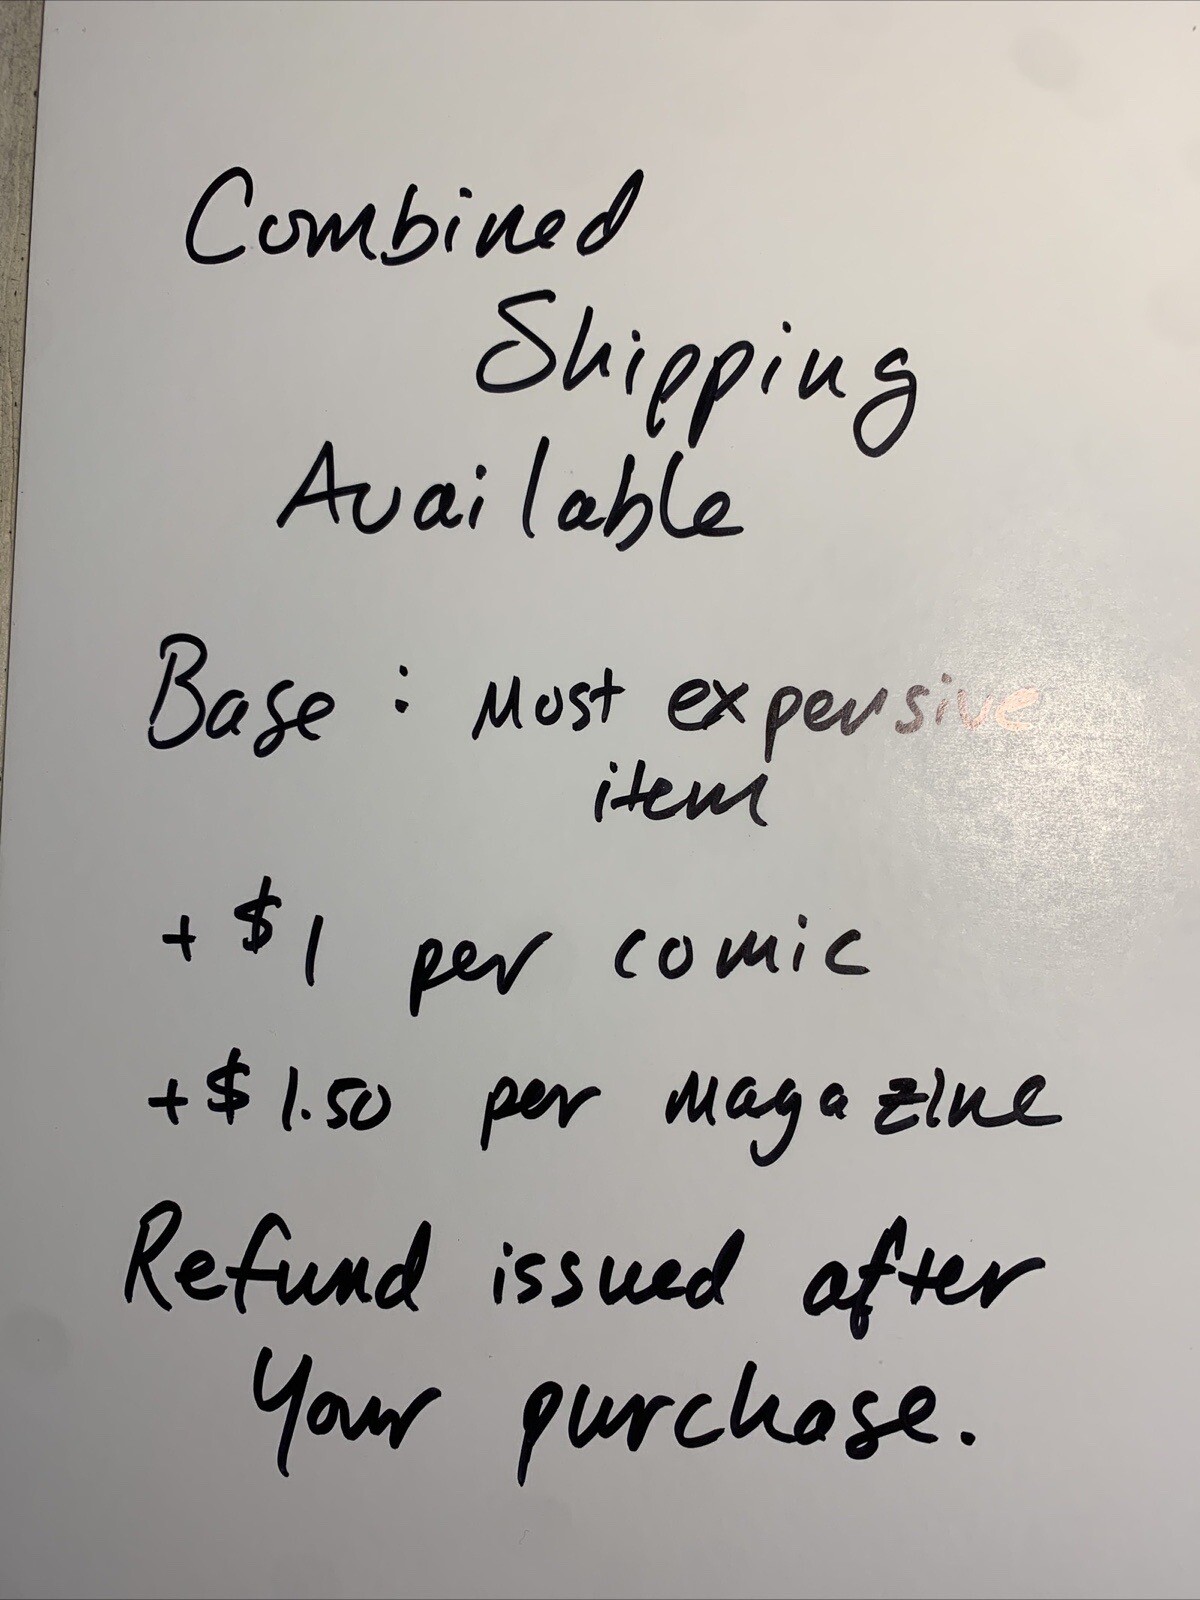 Combined
Shipping
Available
Base : Most expensive
item
+ $1 per comic
+ $1.50 per magazine
Refund issued after
Your purchase.